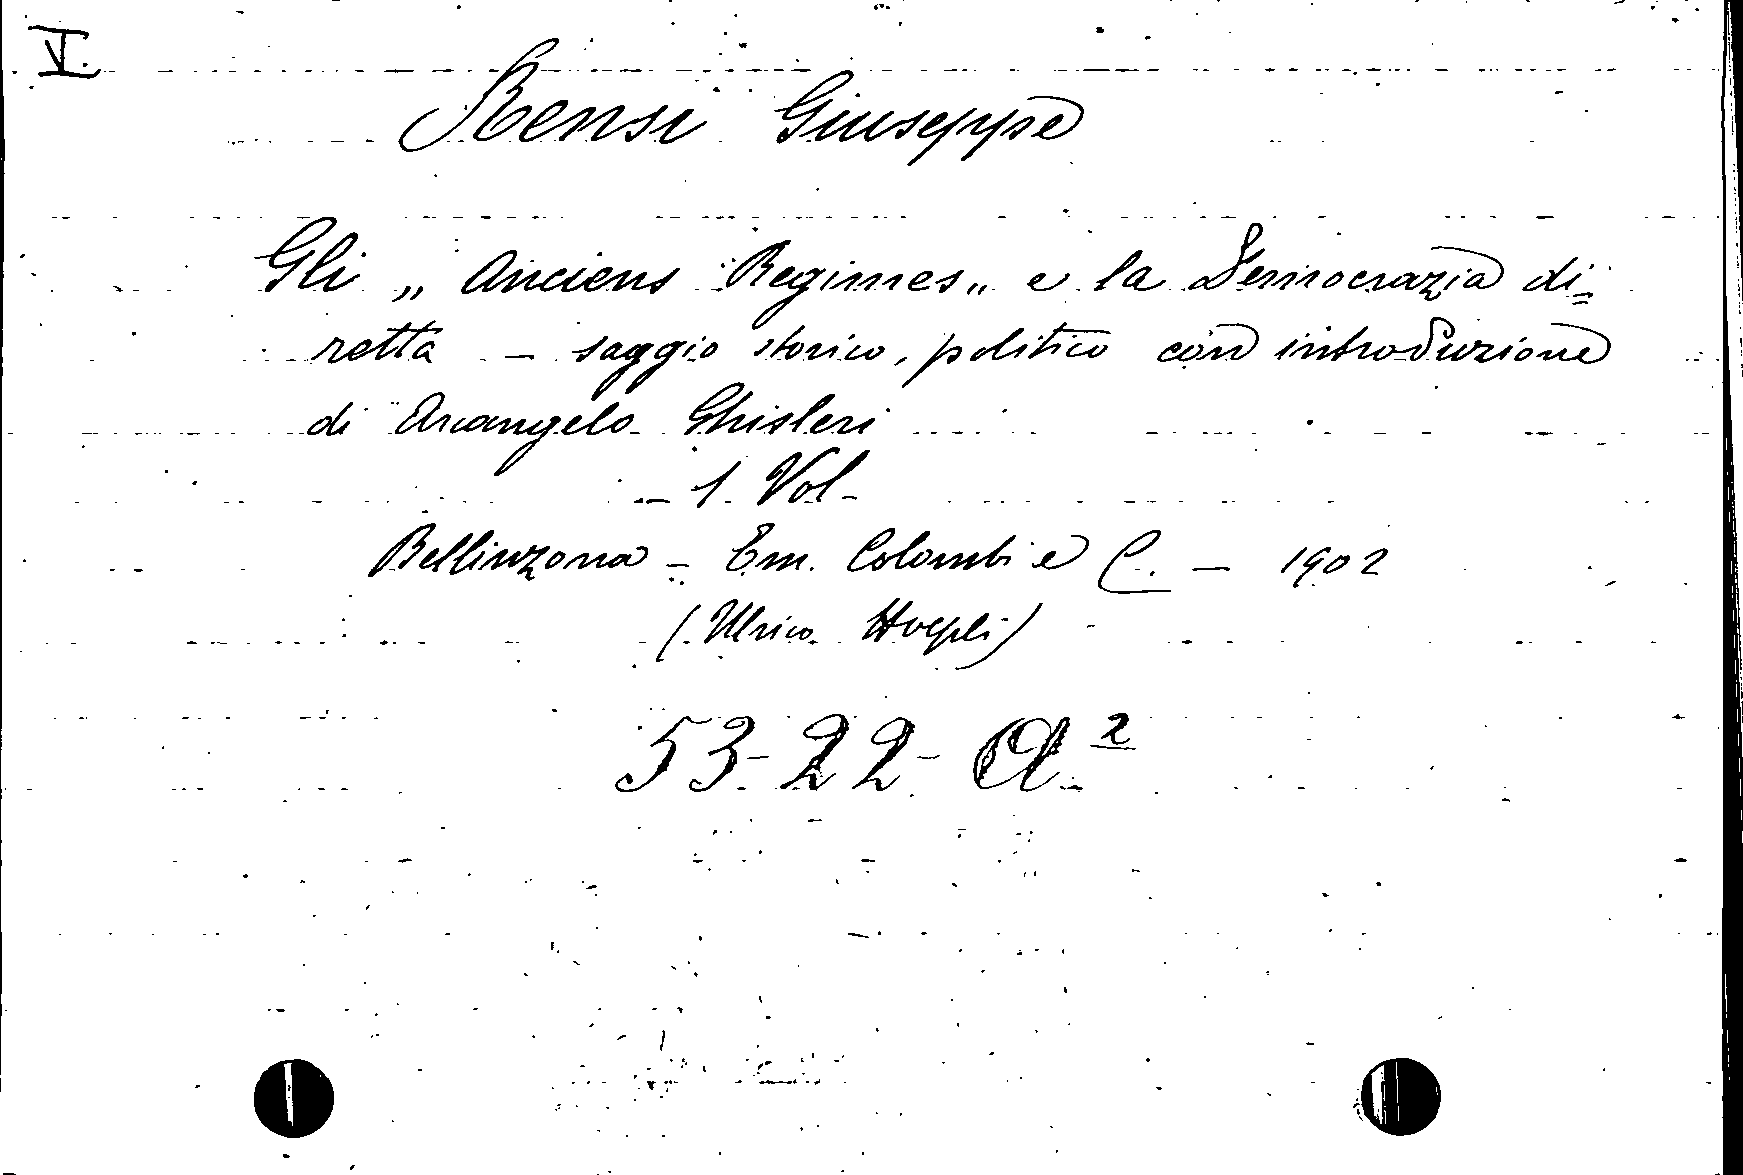 V.
Rensi Giuseppe
Gli „ Anciens Regimes „ e la Democrazia di=
retta – saggio storico, politico con introduzione
di Arcangelo Ghisleri
– 1. Vol –
Bellinzona – Em. Colombi e C. – 1902
(Ulrico Hoepli)
53-22- A.²